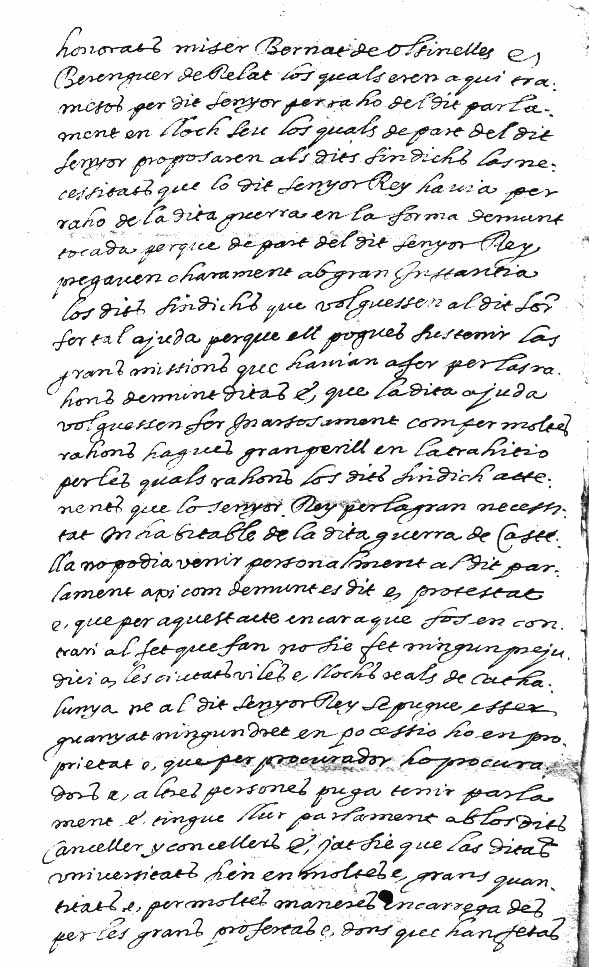 honorats miser Bernat de Olsinelles e,
Berenguer de Relat los quals eren aqui tra-
metos per dit senyor per raho del dit parla-
ment en lloch seu los quals de part del dit
senyor proposaren als dits sindichs las ne-
cessitats que lo dit senyor Rey havia per
raho de la dita guerra en la forma demunt
tocada perque de part del dit senyor Rey
pregaven charament ab gran Instantia
los dits sindichs que volguessen al dit sor
fer tal ajuda perque ell pogues sustenir las
grans missions que havian a fer per las ra-
hons demunt ditas e, que la dita ajuda
volguessen fer com per moltes
rahons hagues gran perill en la trahitio
per les quals rahons los dits sindich atte-
nents que lo senyor Rey per la gran necessi-
tat Inhabitable de la dita guerra de Caste-
lla no podia venir personalment al dit par-
lament axi com demunt es dit e, protestat
e, que per aquest acte encara que fos en con-
trari al fet que fan no sie fet ningun preju-
dici a, les ciutats viles e, llochs reals de Catha-
lunya ne al dit senyor Rey se pugue esser
guanyat ningun dret en pocessio ho en pro-
prietat o, que per procurador ho procura-
dors e, altres persones puga tenir parla-
ment e, tingue llur parlament ab los dits
Canceller y concellers e, jat sie que las ditas
universitats hen en moltes e, grans quan-
titats e, per moltes maneres encarregades
per les grans profertas e, dons que han fetas